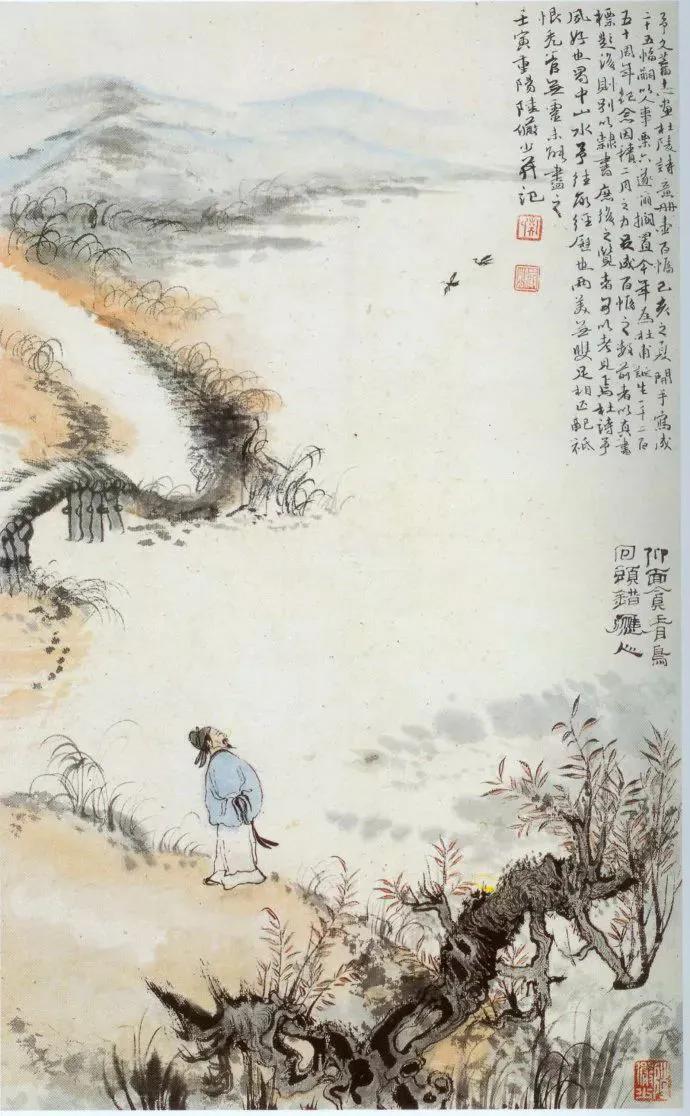 予久蓄志畫杜陵詩意册壹百幀己亥之夏開手寫成
二十五幅嗣以人事栗六遂爾擱置今年為杜甫誕生一千二百
五十周年紀念因積二月之力足成百幀之数前者以真書
標題後則別以隸書庶後之覽者可以考見焉杜詩予
夙好也蜀中山水予往所經歷也兩美並雙足相匹配祇
恨禿管無靈未能盡之
壬寅重陽陸儼少并記
仰面貪看鳥
回頭錯應人